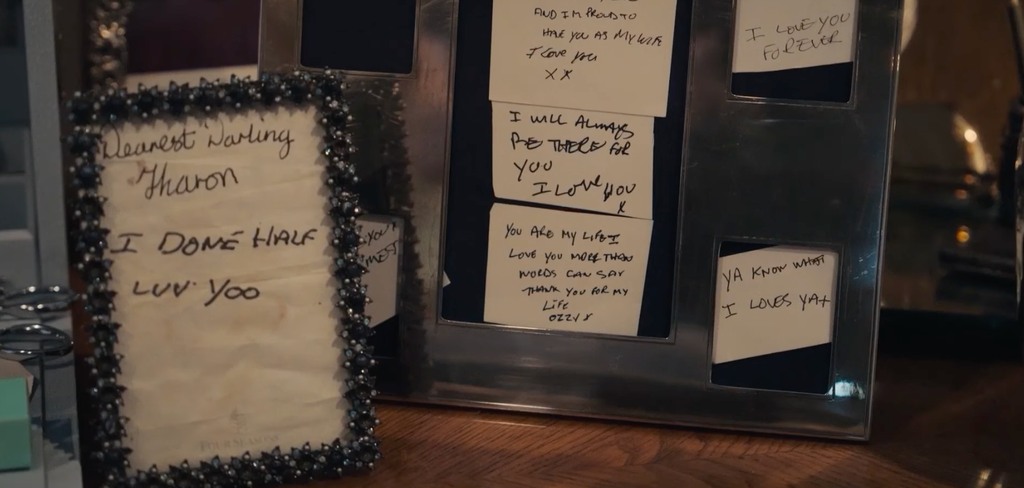 Dearest Darling
Sharon
I DONE HALF
LUV YOO
AND I'M PROUD TO
HAVE YOU AS MY WIFE
I love you
X X
I WILL ALWAYS
BE THERE FOR
YOU
I LOVE YOU
X
YOU ARE MY LIFE I
LOVE YOU MORE THAN
WORDS CAN SAY
THANK YOU FOR MY
LIFE
OZZY X
I LOVE YOU
FOREVER
YA KNOW WHAT
I LOVES YA X